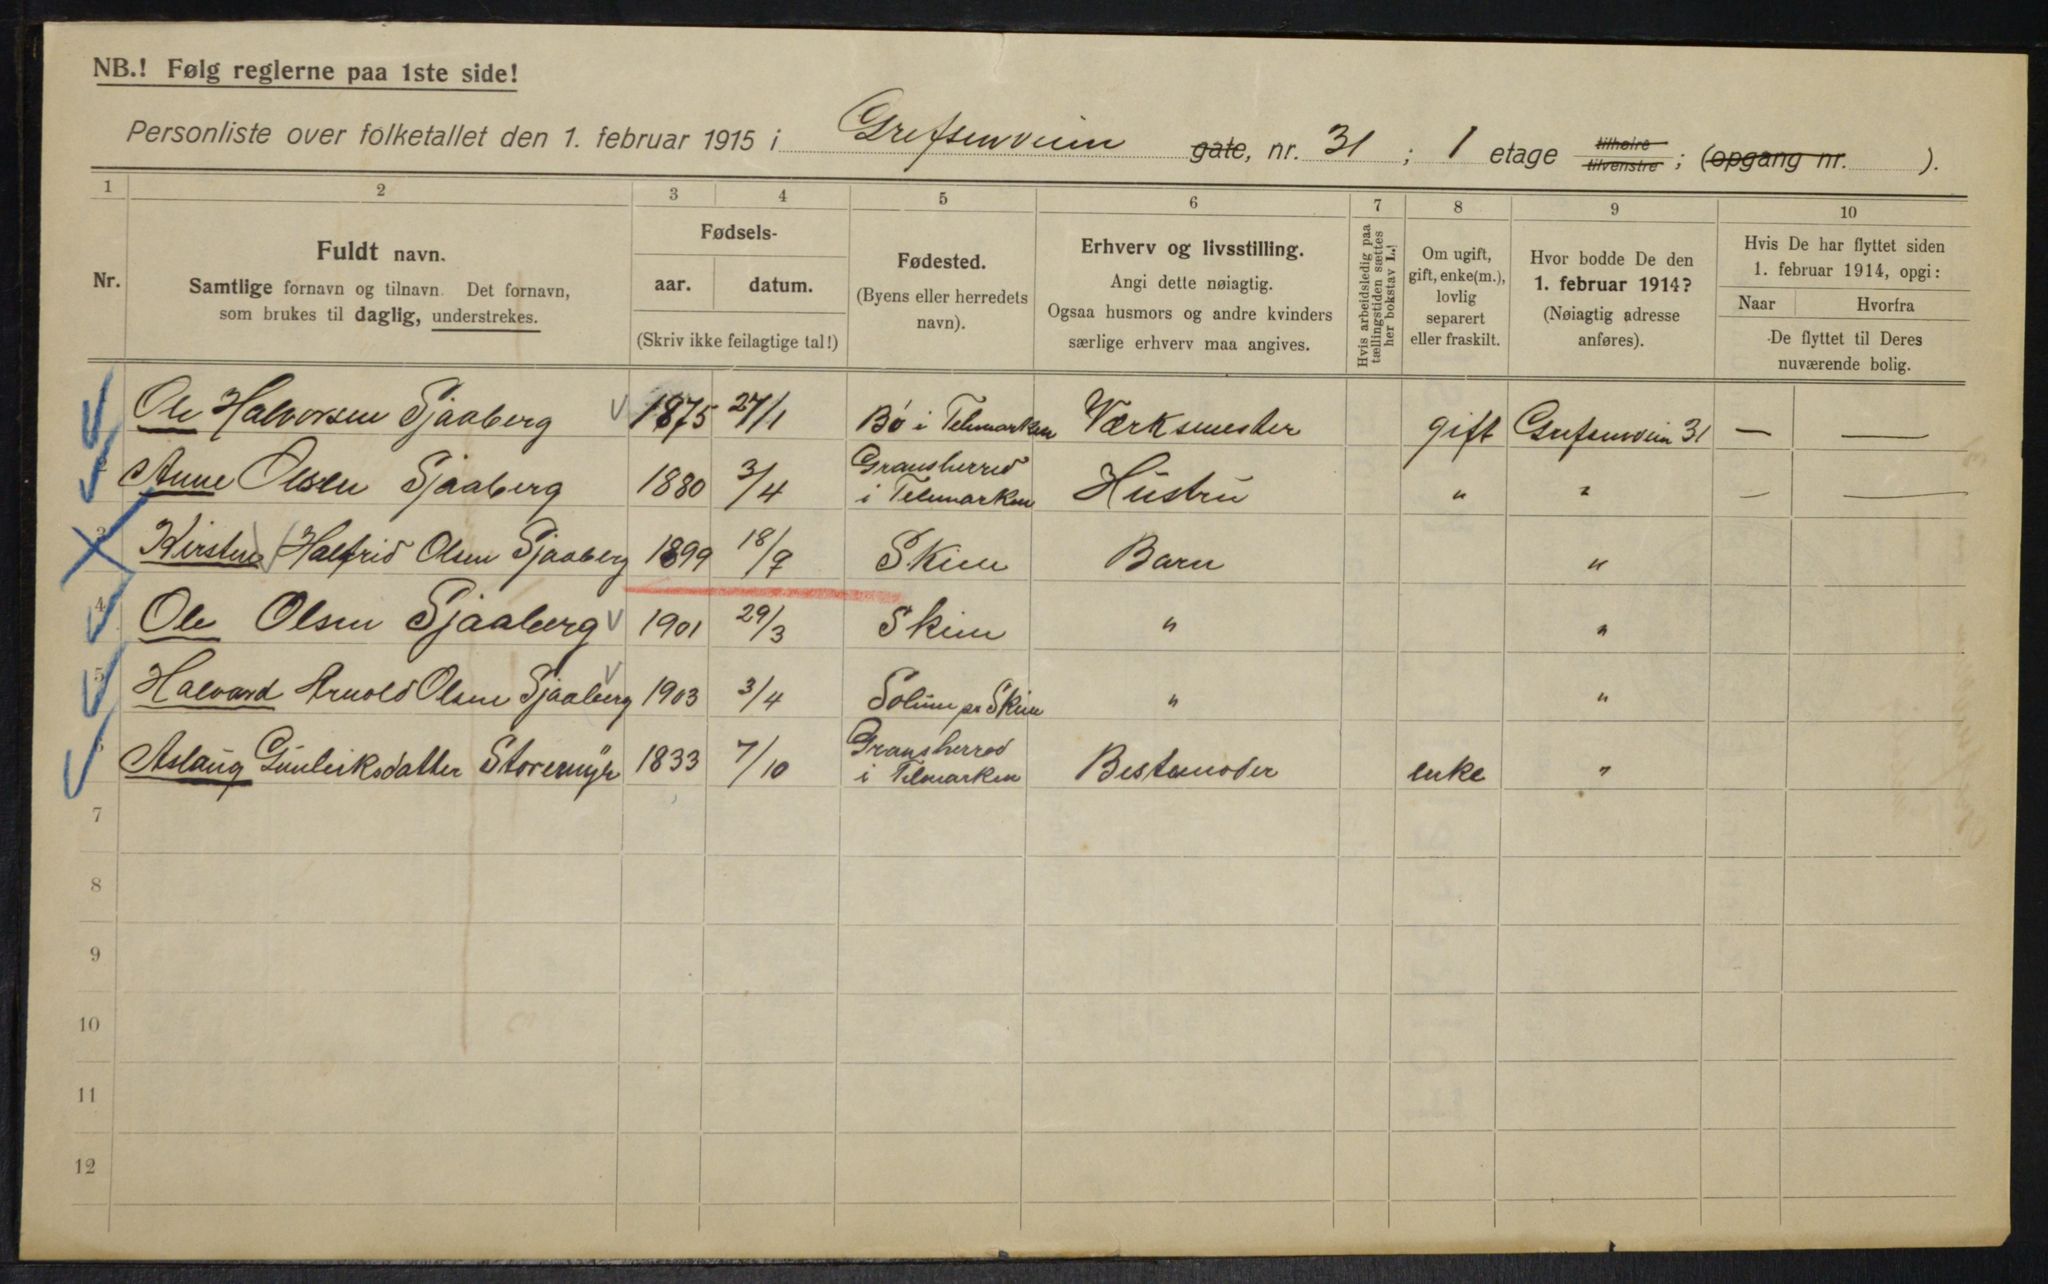 NB.! Følg reglerne paa 1ste side!
Personliste over folketallet den 1. februar 1915 i Grefsenveien gate, nr. 31 ; 1 etage tilhøire tilvenstre ; (opgang nr. ).
1 2 3 4 5 6 7 8 9 10
Nr.
Fuldt navn.
Samtlige fornavn og tilnavn. Det fornavn,
som brukes til daglig, understrekes.
Fødsels-
aar. datum.
(Skriv ikke feilagtige tal!)
Fødested.
(Byens eller herredets
navn).
Erhverv og livsstilling.
Angi dette nøiagtig.
Ogsaa husmors og andre kvinders
særlige erhverv maa angives.
Hvis arbeidsledig paa
tællingstiden sættes
her bokstav L.!
Om ugift,
gift, enke(m.),
lovlig
separert
eller fraskilt.
Hvor bodde De den
1. februar 1914?
(Nøiagtig adresse
anføres).
Hvis De har flyttet siden
1. februar 1914, opgi:
Naar Hvorfra
De flyttet til Deres
nuværende bolig.
Ole Halvorsen Sjaaberg 1875 27/1 Bø i Telemarken Værksmester gift Grefsenveien 31 — —
2 Anne Olsen Sjaaberg 1880 3/4 Gransherred i Telemarken Hustru " " — —
3 Kirsten Halfrid Olsen Sjaaberg 1899 18/9 Skien Barn "
4 Ole Olsen Sjaaberg 1901 29/3 Skien " "
5 Halvard Arnold Olsen Sjaaberg 1903 3/4 Solum pr Skien " "
6 Aslaug Gunleiksdatter Storemyr 1833 7/10 Gransherred i Telemarken Bestemoder enke "
7
8
9
10
11
12